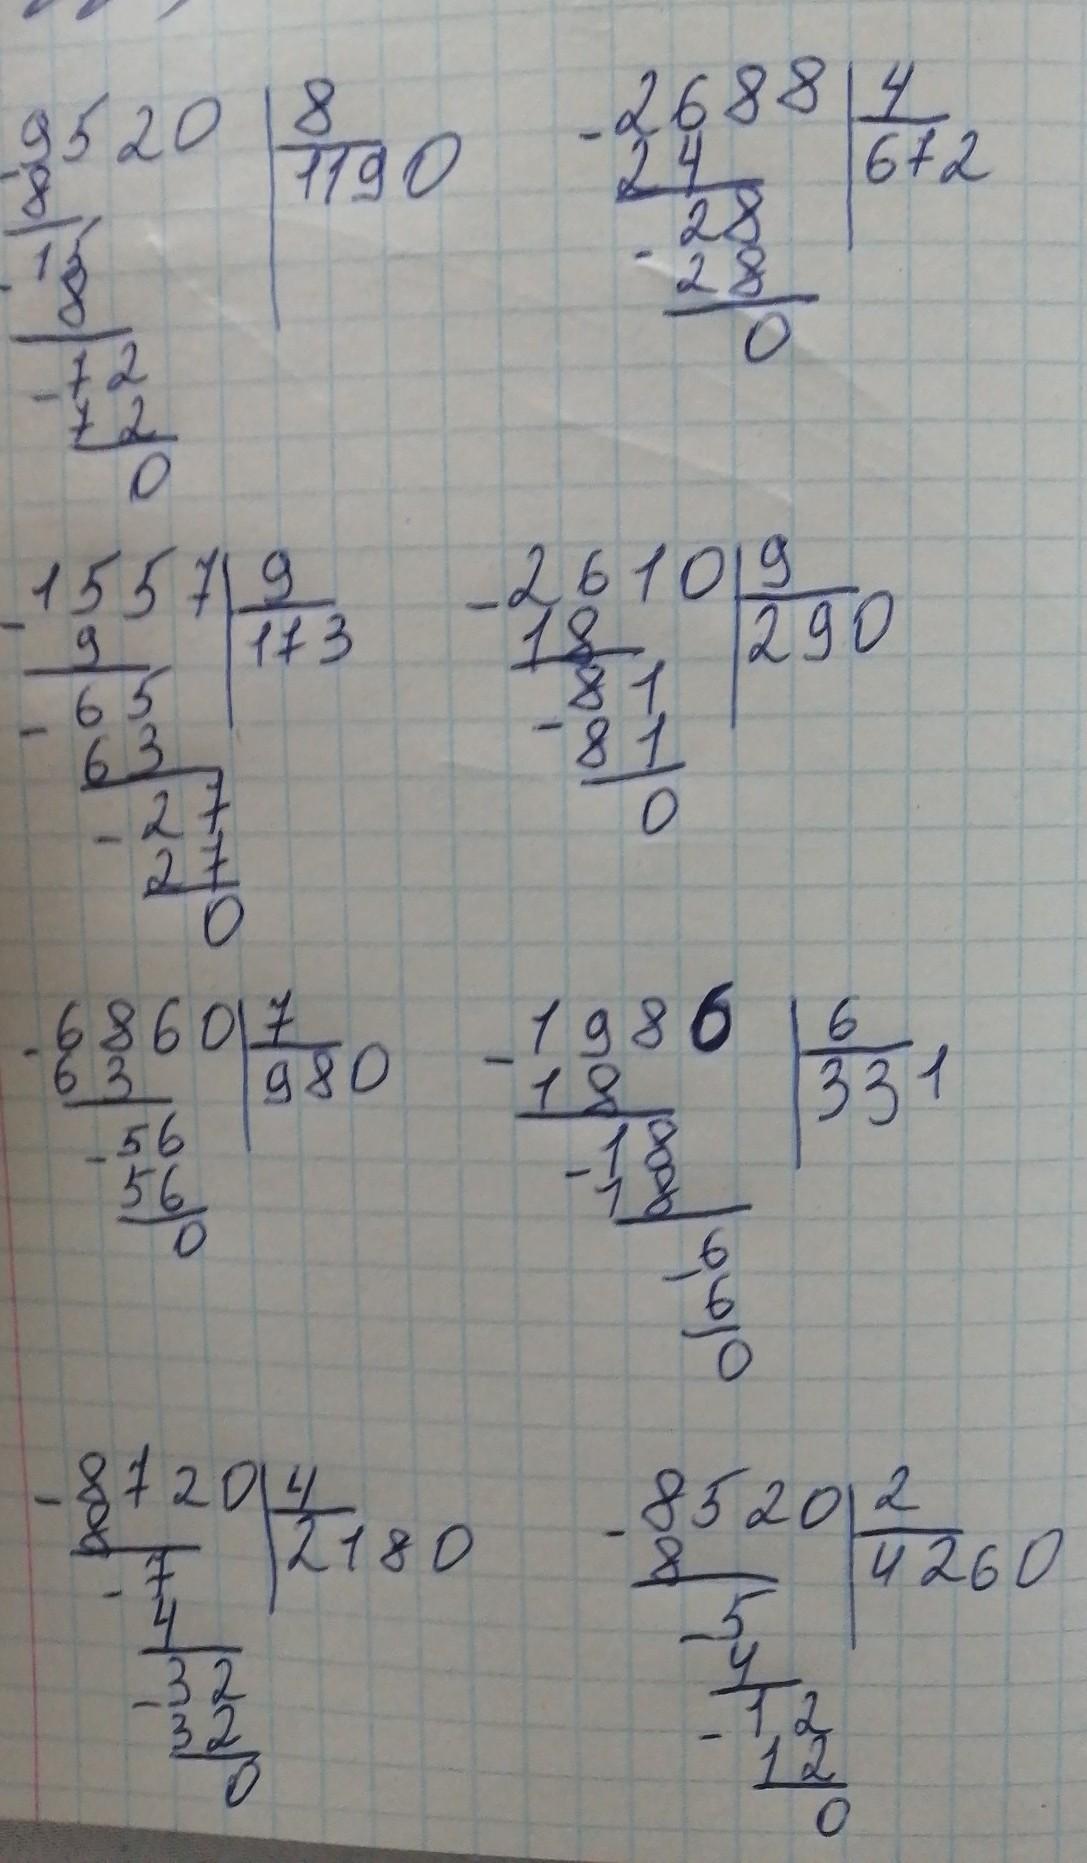 -9520 | 8
8 1190
-15
8
-72
72
0
-2688 | 4
24 672
-28
28
0
-1557 | 9
9 173
-65
63
-27
27
0
-2610 | 9
18 290
-81
81
0
-6860 | 7
63 980
-56
56
0
-1986 | 6
18 331
-18
18
-6
6
0
-8720 | 4
8 2180
-7
4
-32
32
0
-8520 | 2
8 4260
-5
4
-12
12
0